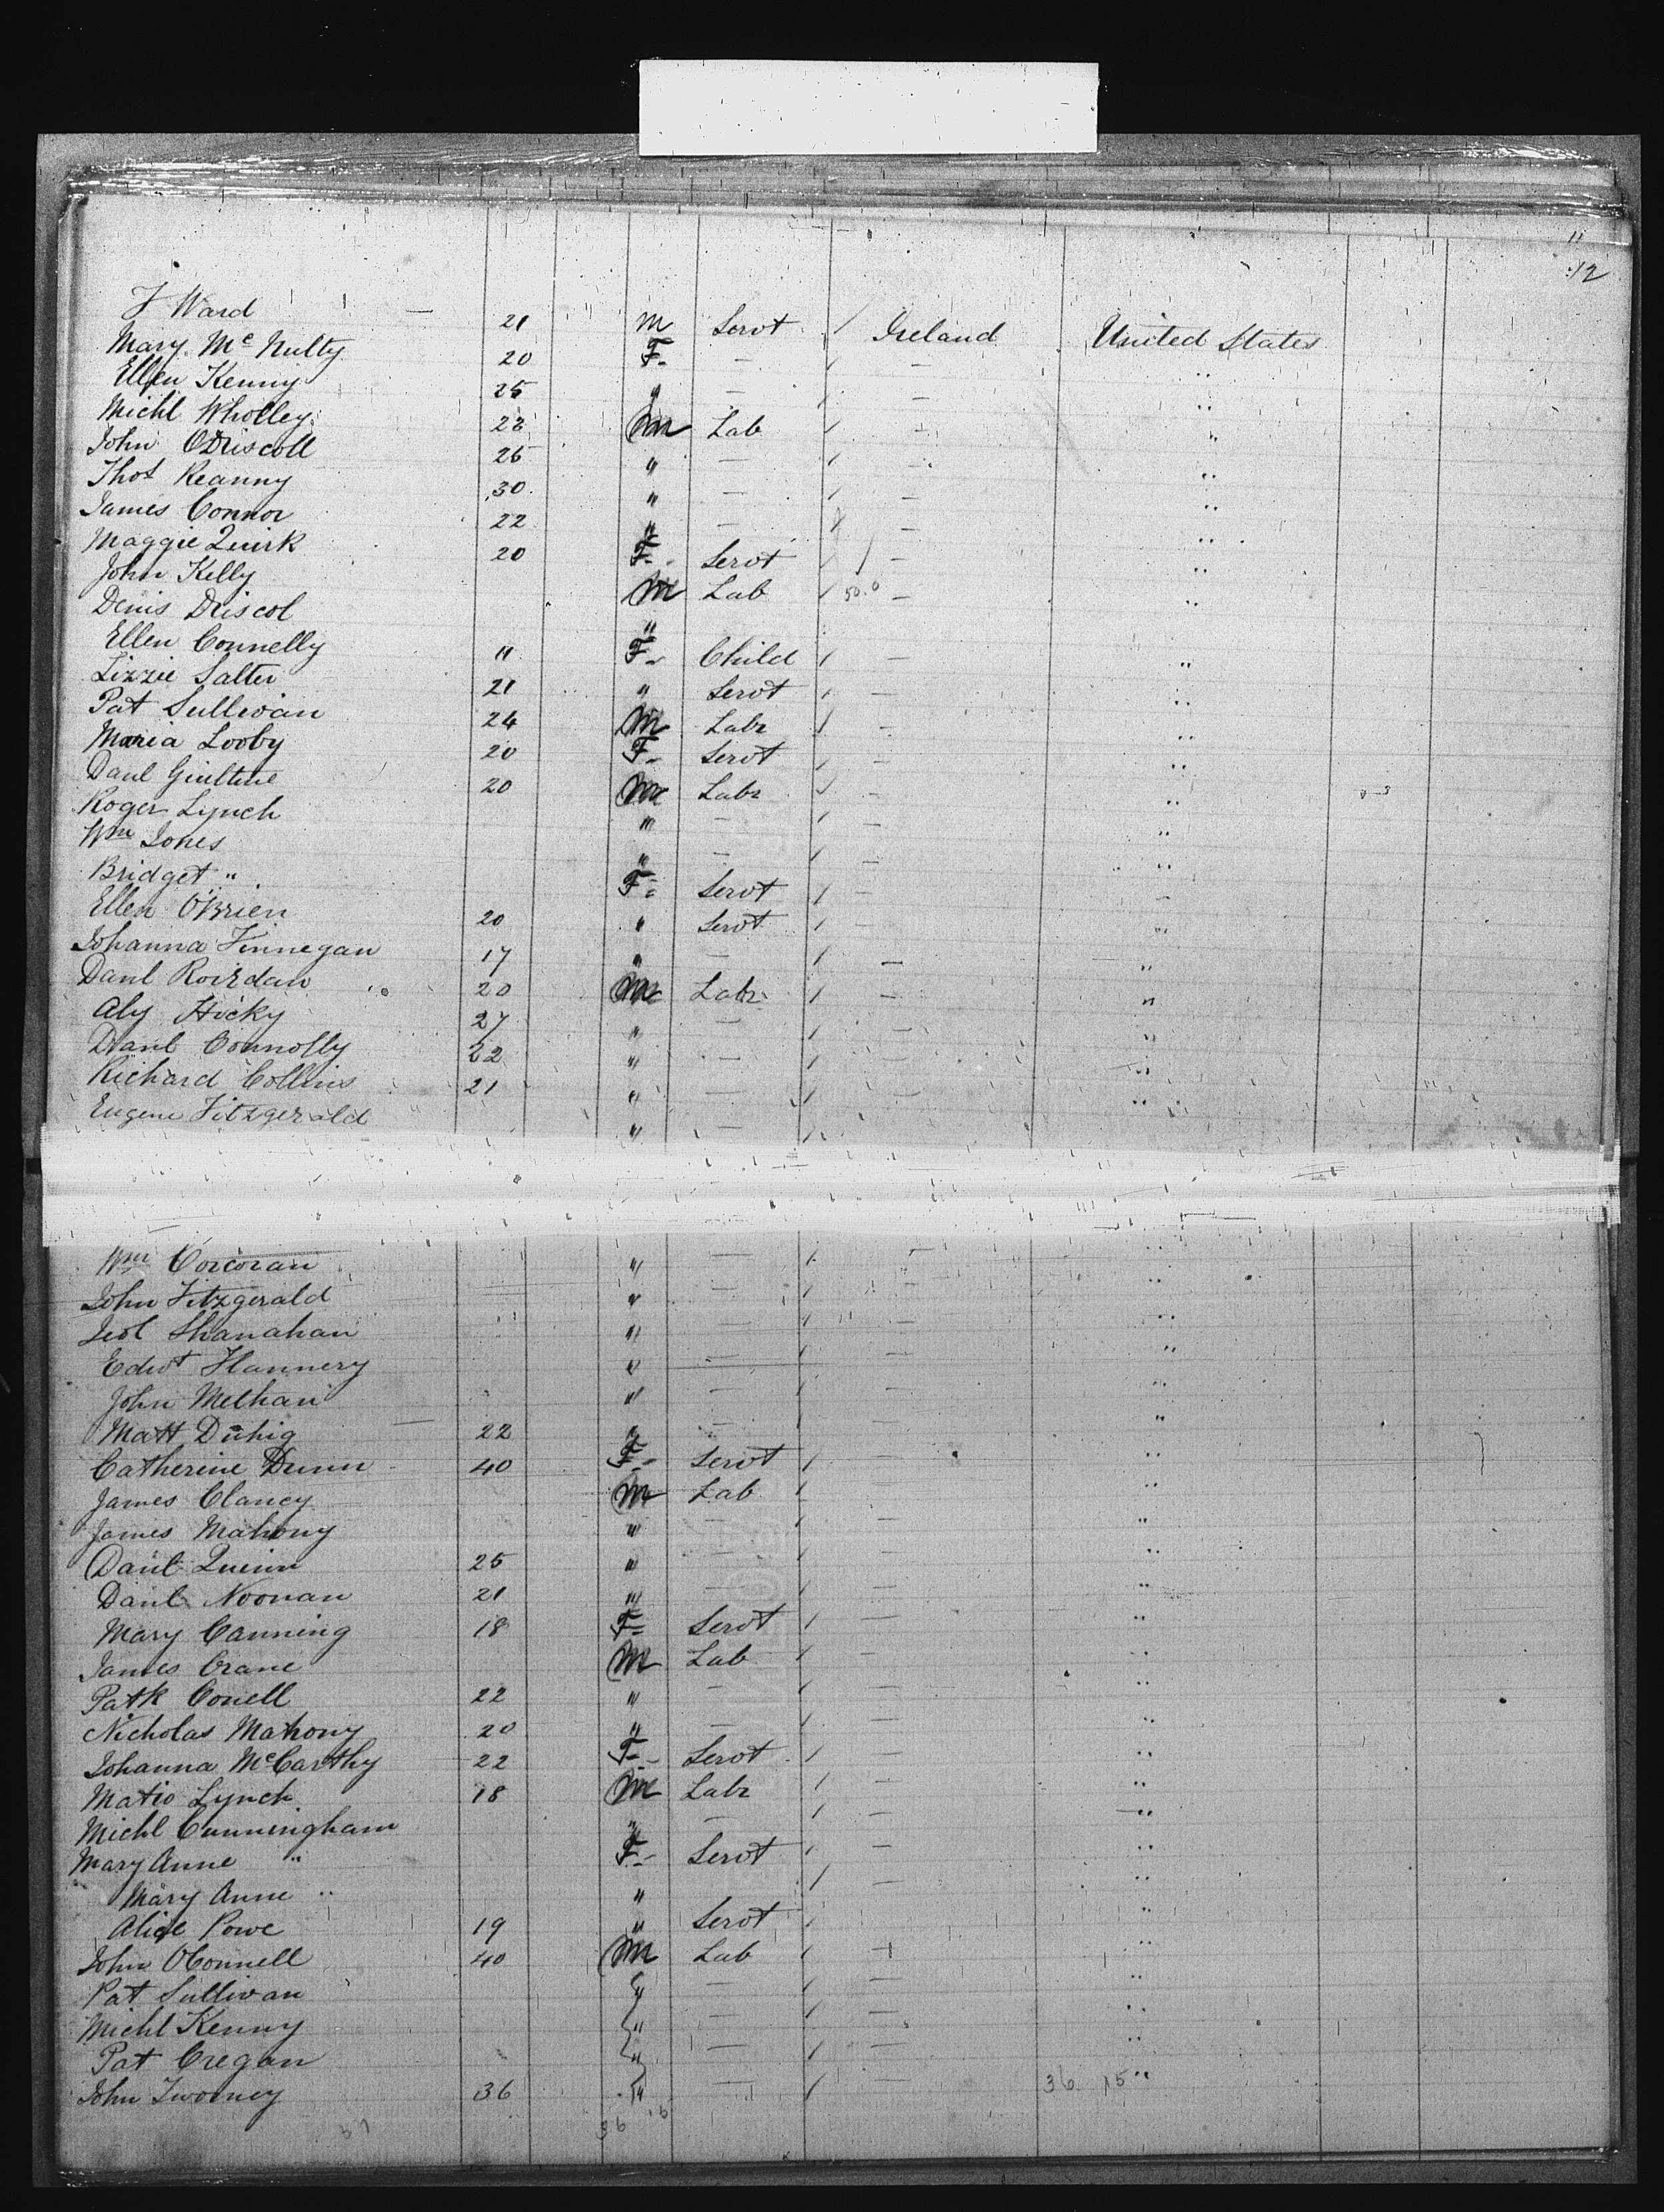 11
12
J Ward — 21 M Servt / Ireland United States
Mary McNulty 20 F - — / — "
Ellen Kenny 25 " — / — "
Michl Wholley 22 M Lab / — "
John ODriscoll 26 " — / — "
Thos Keanny 30 " — / — "
James Connor 22 " — / — "
Maggie Quirk 20 F - Servt / — "
John Kelly M Lab / 50.0 — "
Denis Driscol "
Ellen Connelly 11 F - Child / — "
Lizzie Salter 21 " Servt / — "
Pat Sullivan 24 M Labr / — "
Maria Looby 20 F - Servt / — "
Danl 20 M Labr / — "
Roger Lynch " — / — "
Wm Jones " — / — "
Bridget " F - Servt / — "
Ellen O'Brien 20 " Servt / — "
Johanna Finnegan 17 " — / — "
Danl Roirdan 20 M Labr / — "
Aly Hicky 27 " — / — "
Danl Connolly 22 " — / — "
Richard Collins 21 " — / — "
Eugene Fitzgerald " — /
Wm Corcoran " — / — "
John Fitzgerald " — / — "
Shanahan " — / — "
Edwd Flannery " — / — "
John Meehan " — / — "
Matt Duhig — 22 " — / — "
Catherine Dunn 40 F - Servt / — "
James Clancy M Lab / — "
James Mahony " — / — "
Danl Quinn 25 " — / — "
Danl Noonan 21 " — / — "
Mary Canning 18 F - Servt / — "
James Crane M Lab / — "
Patk Conell 22 " — / — "
Nicholas Mahony 20 " — / — "
Johanna McCarthy 22 F - Servt / — "
Lynch 18 M Labr / — "
Michl Cunningham " — / — "
Mary Anne " F - Servt / — "
Mary Anne " " / — "
Alice Powe 19 " Servt / "
John OConnell 40 M Lab / — "
Pat Sullivan " — / — "
Michl Kenny " — / — "
Pat Cregan " — / — "
John Twomey 36 " — / 36 15 "
37 36 16